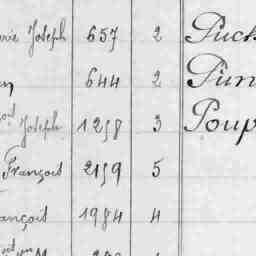 Joseph 657 2 Puck
644 2 Pun
Joseph 1258 3 Poup
François 2159 5
ançois 1984 4